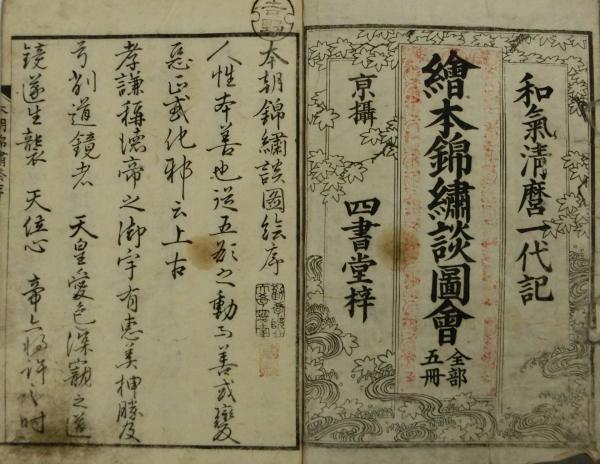 和氣清麿一代記
繪本錦繡談圖會
全部
五冊
亰攝 四書堂梓
本朝錦繡談図絵序
人性本善也從五欲之動而善或變
惡正或化邪云上古
孝謙稱德帝之御宇有惠美押勝及
弓削道鏡者 天皇愛色深 之道
鏡遂生襲 天位心 帝 將許之時